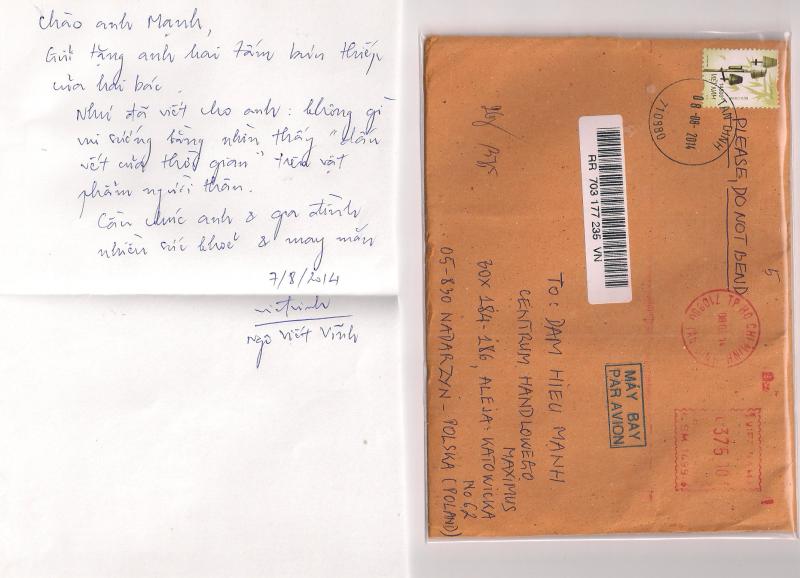 Chào anh Mạnh,
Gửi tặng anh hai tấm bưu thiếp
của hai bác.
Như đã viết cho anh: không gì
vui sướng bằng nhìn thấy "dấu
vết của thời gian" trên vật
phẩm người thân.
Cầu chúc anh & gia đình
nhiều sức khoẻ & may mắn
7/8/2014
Ngô Viết Vinh
VIETNAM
TAN DINH
08-08-2014
710990
PLEASE, DO NOT BEND
5
RR 703 177 235 VN
TP HO CHI MINH
MÁY BAY
PAR AVION
375 10
TO: DAM HIEU MANH
CENTRUM HANDLOWEGO
MAXIMUS
BOX 184-186, ALEJA: KATOWICKA
No 62
05-830 NADARZYN - POLSKA (POLAND)